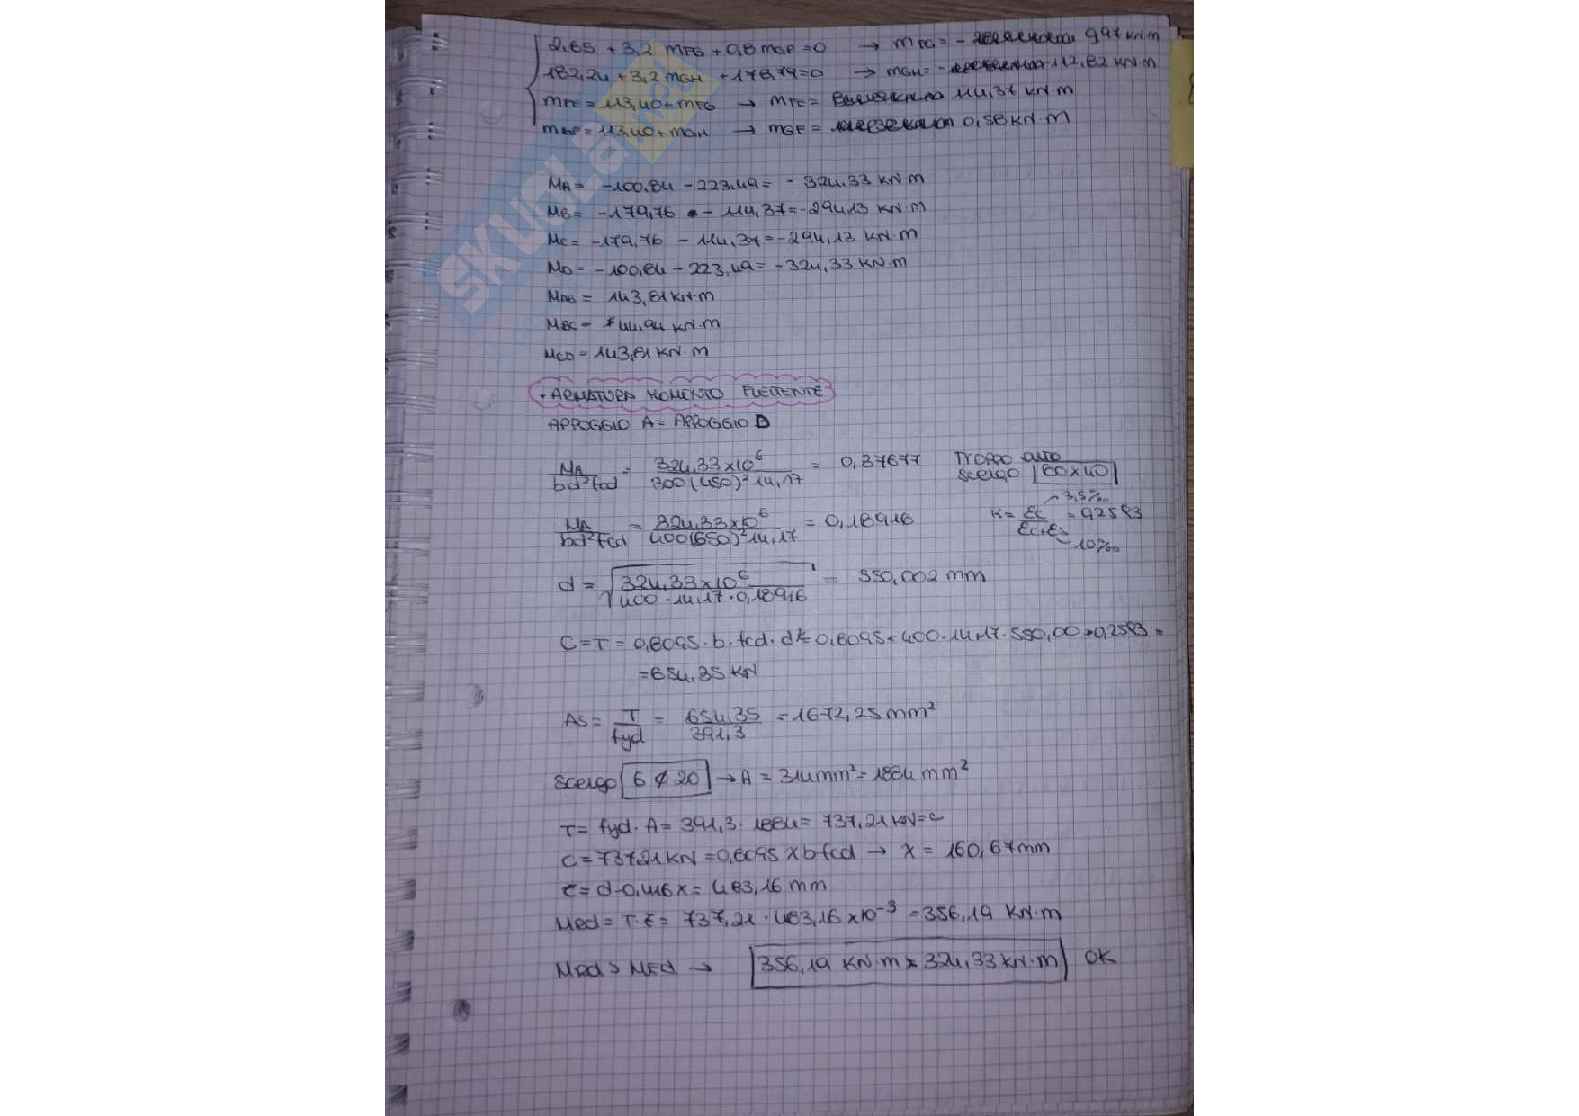 2,65 + 3,2 mFG + 0,8 mGF = 0 → mFG = - 0,97 kN·m
182,24 + 3,2 mGH + 178,79 = 0 → mGH = - 112,82 kN·m
mFE = 113,40 + mFG → mFE = 114,37 kN·m
mGF = 113,40 + mGH → mGF = 0,58 kN·m
MA = -100,84 - 223,49 = - 324,33 kN·m
MB = -179,76 - 114,37 = -294,13 kN·m
MC = -179,76 - 114,37 = -294,13 kN·m
MD = -100,84 - 223,49 = -324,33 kN·m
MAB = 143,81 kN·m
MBC = 44,94 kN·m
MCD = 143,81 kN·m
• ARMATURA MOMENTO FLETTENTE
APPOGGIO A = APPOGGIO D
MA / bd²fcd = 324,33×10⁶ / 300(450)²14,17 = 0,37677 TROPPO ALTO
scelgo 60×40
MA / bd²fcd = 324,33×10⁶ / 400(550)²14,17 = 0,18916 K = εc / εc+εs = 0,2593
3,5‰
10‰
d = √ 324,33×10⁶ / 400·14,17·0,18916 = 550,002 mm
C = T = 0,8095·b·fcd·dk = 0,8095·400·14,17·550,00·0,2593 =
= 654,35 kN
As = T / fyd = 654,35 / 391,3 = 1672,25 mm²
Scelgo 6 ø 20 → A = 314 mm² = 1884 mm²
T = fyd·A = 391,3·1884 = 737,21 kN = C
C = 737,21 kN = 0,8095 x b fcd → x = 160,67 mm
z = d - 0,416x = 483,16 mm
Med = T·z = 737,21·483,16×10⁻³ = 356,19 kN·m
MRd > MEd → 356,19 kN·m > 324,33 kN·m OK
SKUOLA.net